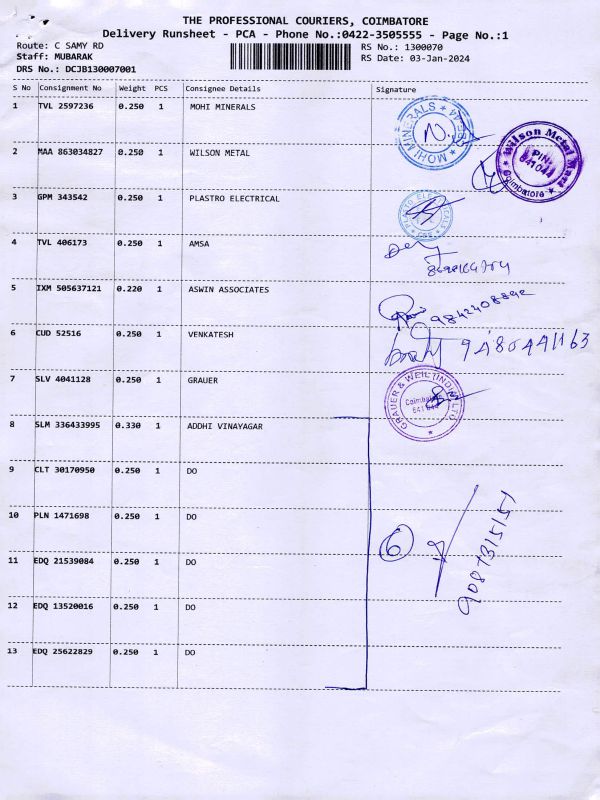 THE PROFESSIONAL COURIERS, COIMBATORE
Delivery Runsheet - PCA - Phone No.:0422-3505555 - Page No.:1
Route: C SAMY RD
RS No.: 1300070
Staff: MUBARAK
RS Date: 03-Jan-2024
DRS No.: DCJB130007001
S No Consignment No Weight PCS Consignee Details Signature
1 TVL 2597236 0.250 1 MOHI MINERALS
MOHI MINERALS
2 MAA 863034827 0.250 1 WILSON METAL
Wilson Metal Mart
PIN-
641044
Coimbatore
3 GPM 343542 0.250 1 PLASTRO ELECTRICAL
4 TVL 406173 0.250 1 AMSA
5 IXM 505637121 0.220 1 ASWIN ASSOCIATES
9842408892
6 CUD 52516 0.250 1 VENKATESH
9480441163
7 SLV 4041128 0.250 1 GRAUER
GRAUER & WEIL (INDIA) LTD
Coimbatore
641 044
8 SLM 336433995 0.330 1 ADDHI VINAYAGAR
9 CLT 30170950 0.250 1 DO
10 PLN 1471698 0.250 1 DO
6
9087315151
11 EDQ 21539084 0.250 1 DO
12 EDQ 13520016 0.250 1 DO
13 EDQ 25622829 0.250 1 DO